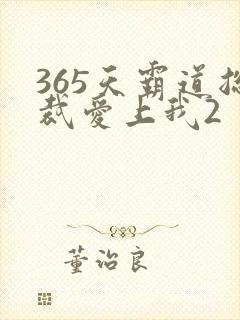 365天霸道总
裁爱上我2
董治良